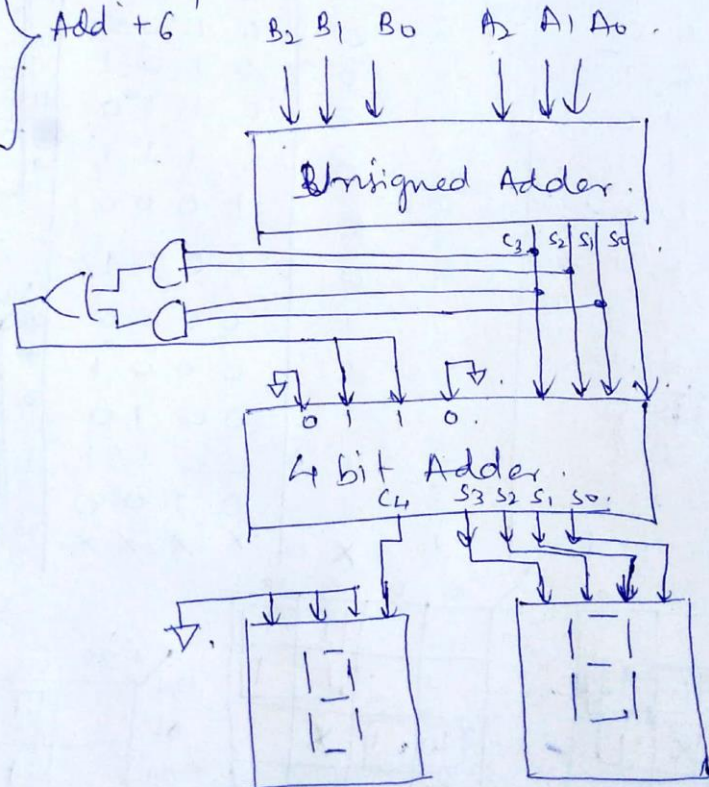 Add +6 B2 B1 B0 A2 A1 A0.
Unsigned Adder.
C3 S2 S1 S0
0 1 1 0.
4 bit Adder.
C4 S3 S2 S1 S0.